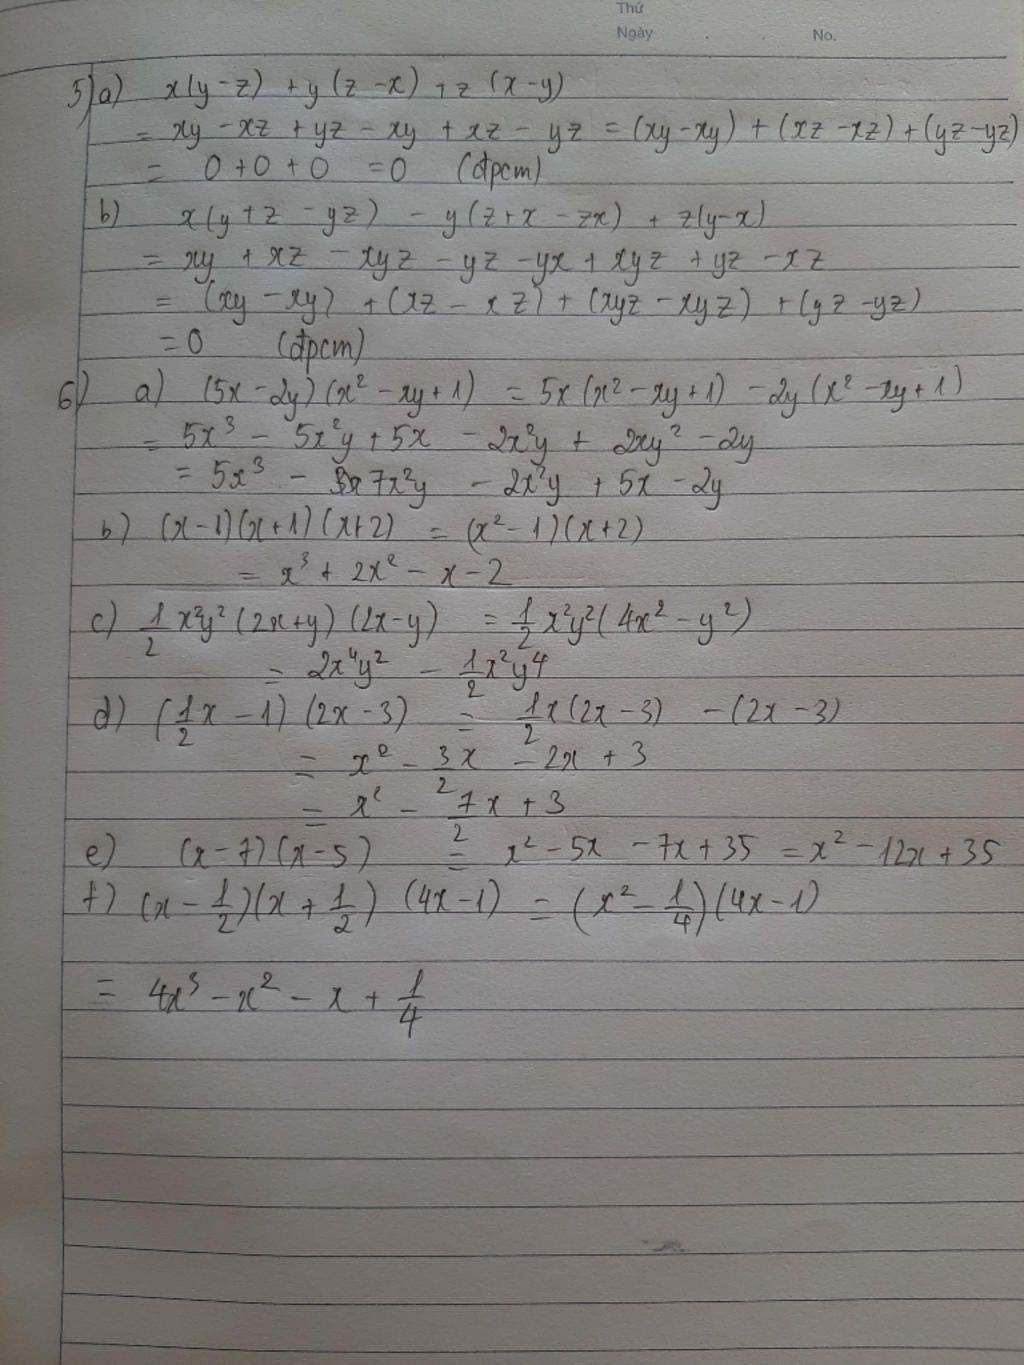 Thứ
Ngày . . No.
5) a) x(y-z) + y(z-x) + z(x-y)
= xy - xz + yz - xy + xz - yz = (xy-xy) + (xz-xz) + (yz-yz)
= 0 + 0 + 0 = 0 (đpcm)
b) x(y+z-yz) - y(z+x-zx) + z(y-x)
= xy + xz - xyz - yz - yx + xyz + yz - xz
= (xy-xy) + (xz-xz) + (xyz-xyz) + (yz-yz)
= 0 (đpcm)
6) a) (5x-2y)(x²-xy+1) = 5x(x²-xy+1) - 2y(x²-xy+1)
= 5x³ - 5x²y + 5x - 2x²y + 2xy² - 2y
= 5x³ - 7x²y - 2x²y + 5x - 2y
b) (x-1)(x+1)(x+2) = (x²-1)(x+2)
= x³ + 2x² - x - 2
c) 1/2 x²y²(2x+y)(2x-y) = 1/2 x²y²(4x²-y²)
= 2x⁴y² - 1/2 x²y⁴
d) (1/2 x - 1)(2x-3) = 1/2 x(2x-3) - (2x-3)
= x² - 3x/2 - 2x + 3
= x² - 7/2 x + 3
e) (x-7)(x-5) = x² - 5x - 7x + 35 = x² - 12x + 35
f) (x - 1/2)(x + 1/2)(4x-1) = (x² - 1/4)(4x-1)
= 4x³ - x² - x + 1/4